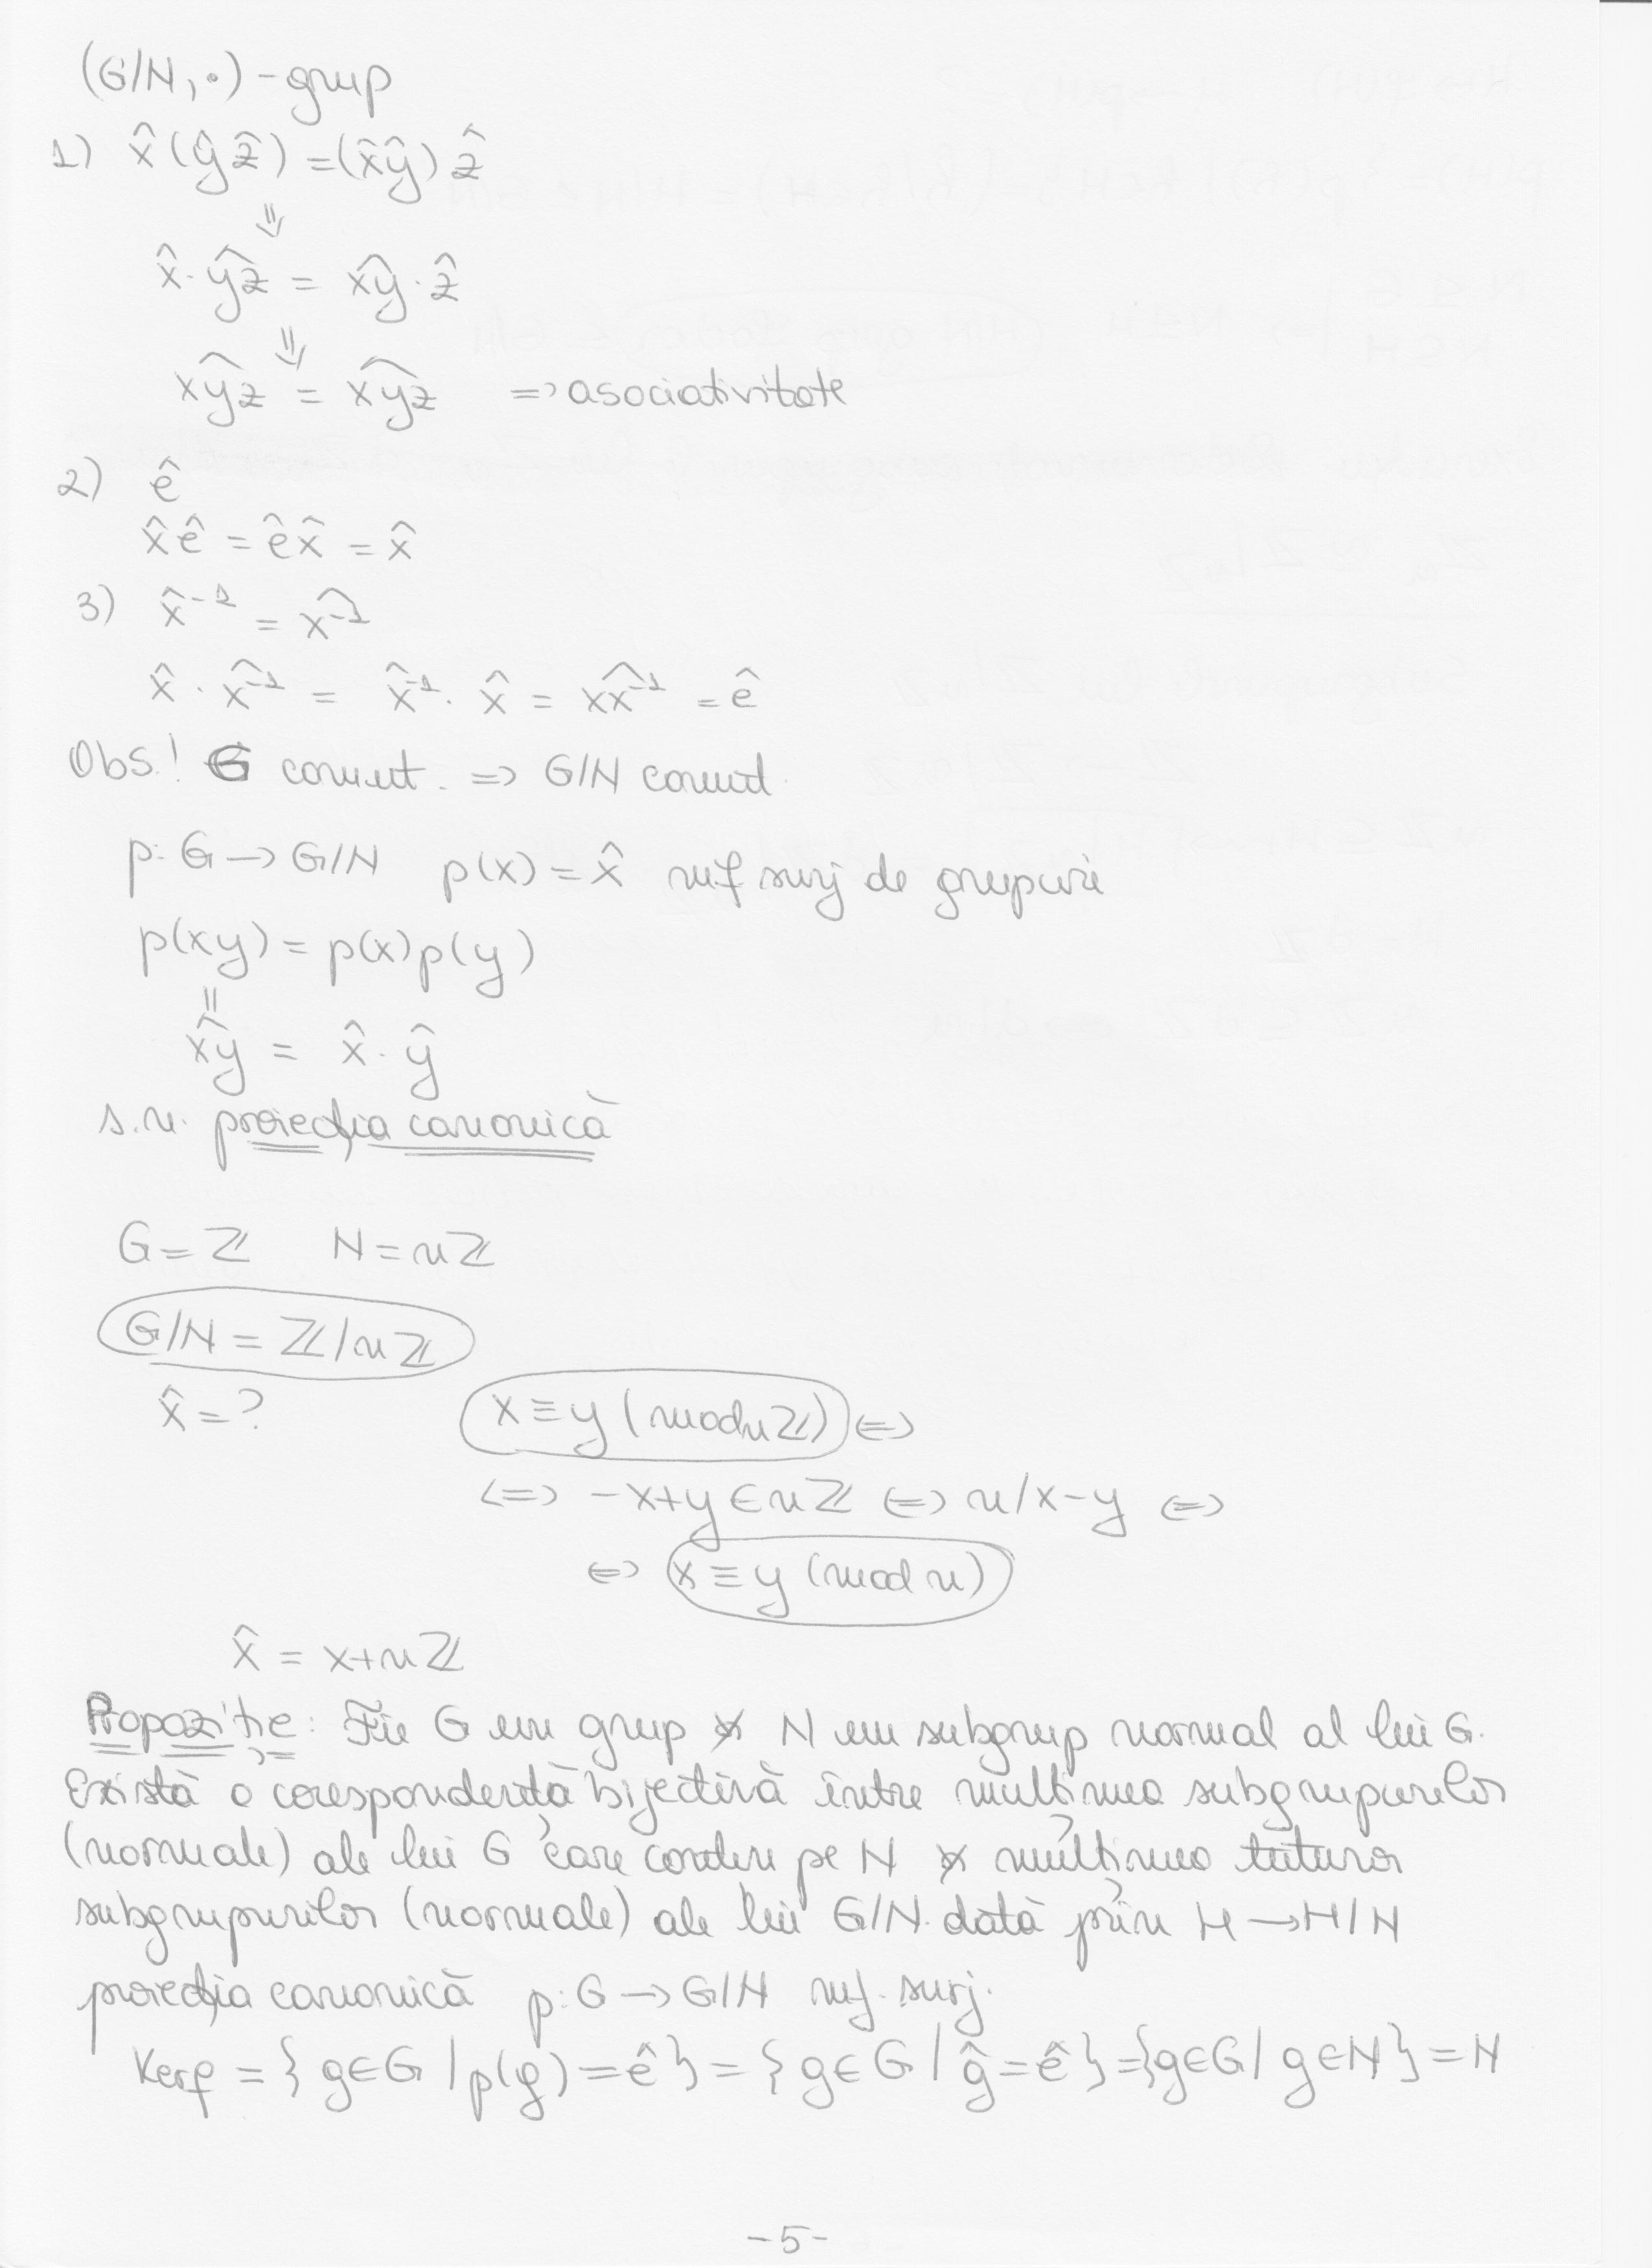 (G/N, •) - grup
1) x̂(ŷẑ) = (x̂ŷ)ẑ
⇓
x̂·y͡z = x͡y·ẑ
⇓
x͡yz = x͡yz => asociativitate
2) ê
x̂ê = êx̂ = x̂
3) x̂⁻¹ = x͡⁻¹
x̂ · x͡⁻¹ = x͡⁻¹ · x̂ = xx͡⁻¹ = ê
Obs! G comut. => G/N comut.
p: G → G/N p(x) = x̂ mf surj de grupuri
p(xy) = p(x)p(y)
=
x͡y = x̂ · ŷ
s.n. proiecția canonică
G = ℤ N = nℤ
G/N = ℤ/nℤ
x̂ = ? x ≡ y (mod nℤ) <=>
<=> -x+y ∈ nℤ <=> n/x-y <=>
<=> x ≡ y (mod n)
x̂ = x+nℤ
Propoziție: Fie G un grup și N un subgrup normal al lui G.
Există o corespondență bijectivă între mulțimea subgrupurilor
(normale) ale lui G care conțin pe N și mulțimea tuturor
subgrupurilor (normale) ale lui G/N dată prin H → H/N
proiecția canonică p: G → G/N mf. surj.
Kerp = { g∈G / p(g) = ê } = { g∈G / ĝ = ê } = { g∈G / g∈N } = N
- 5 -